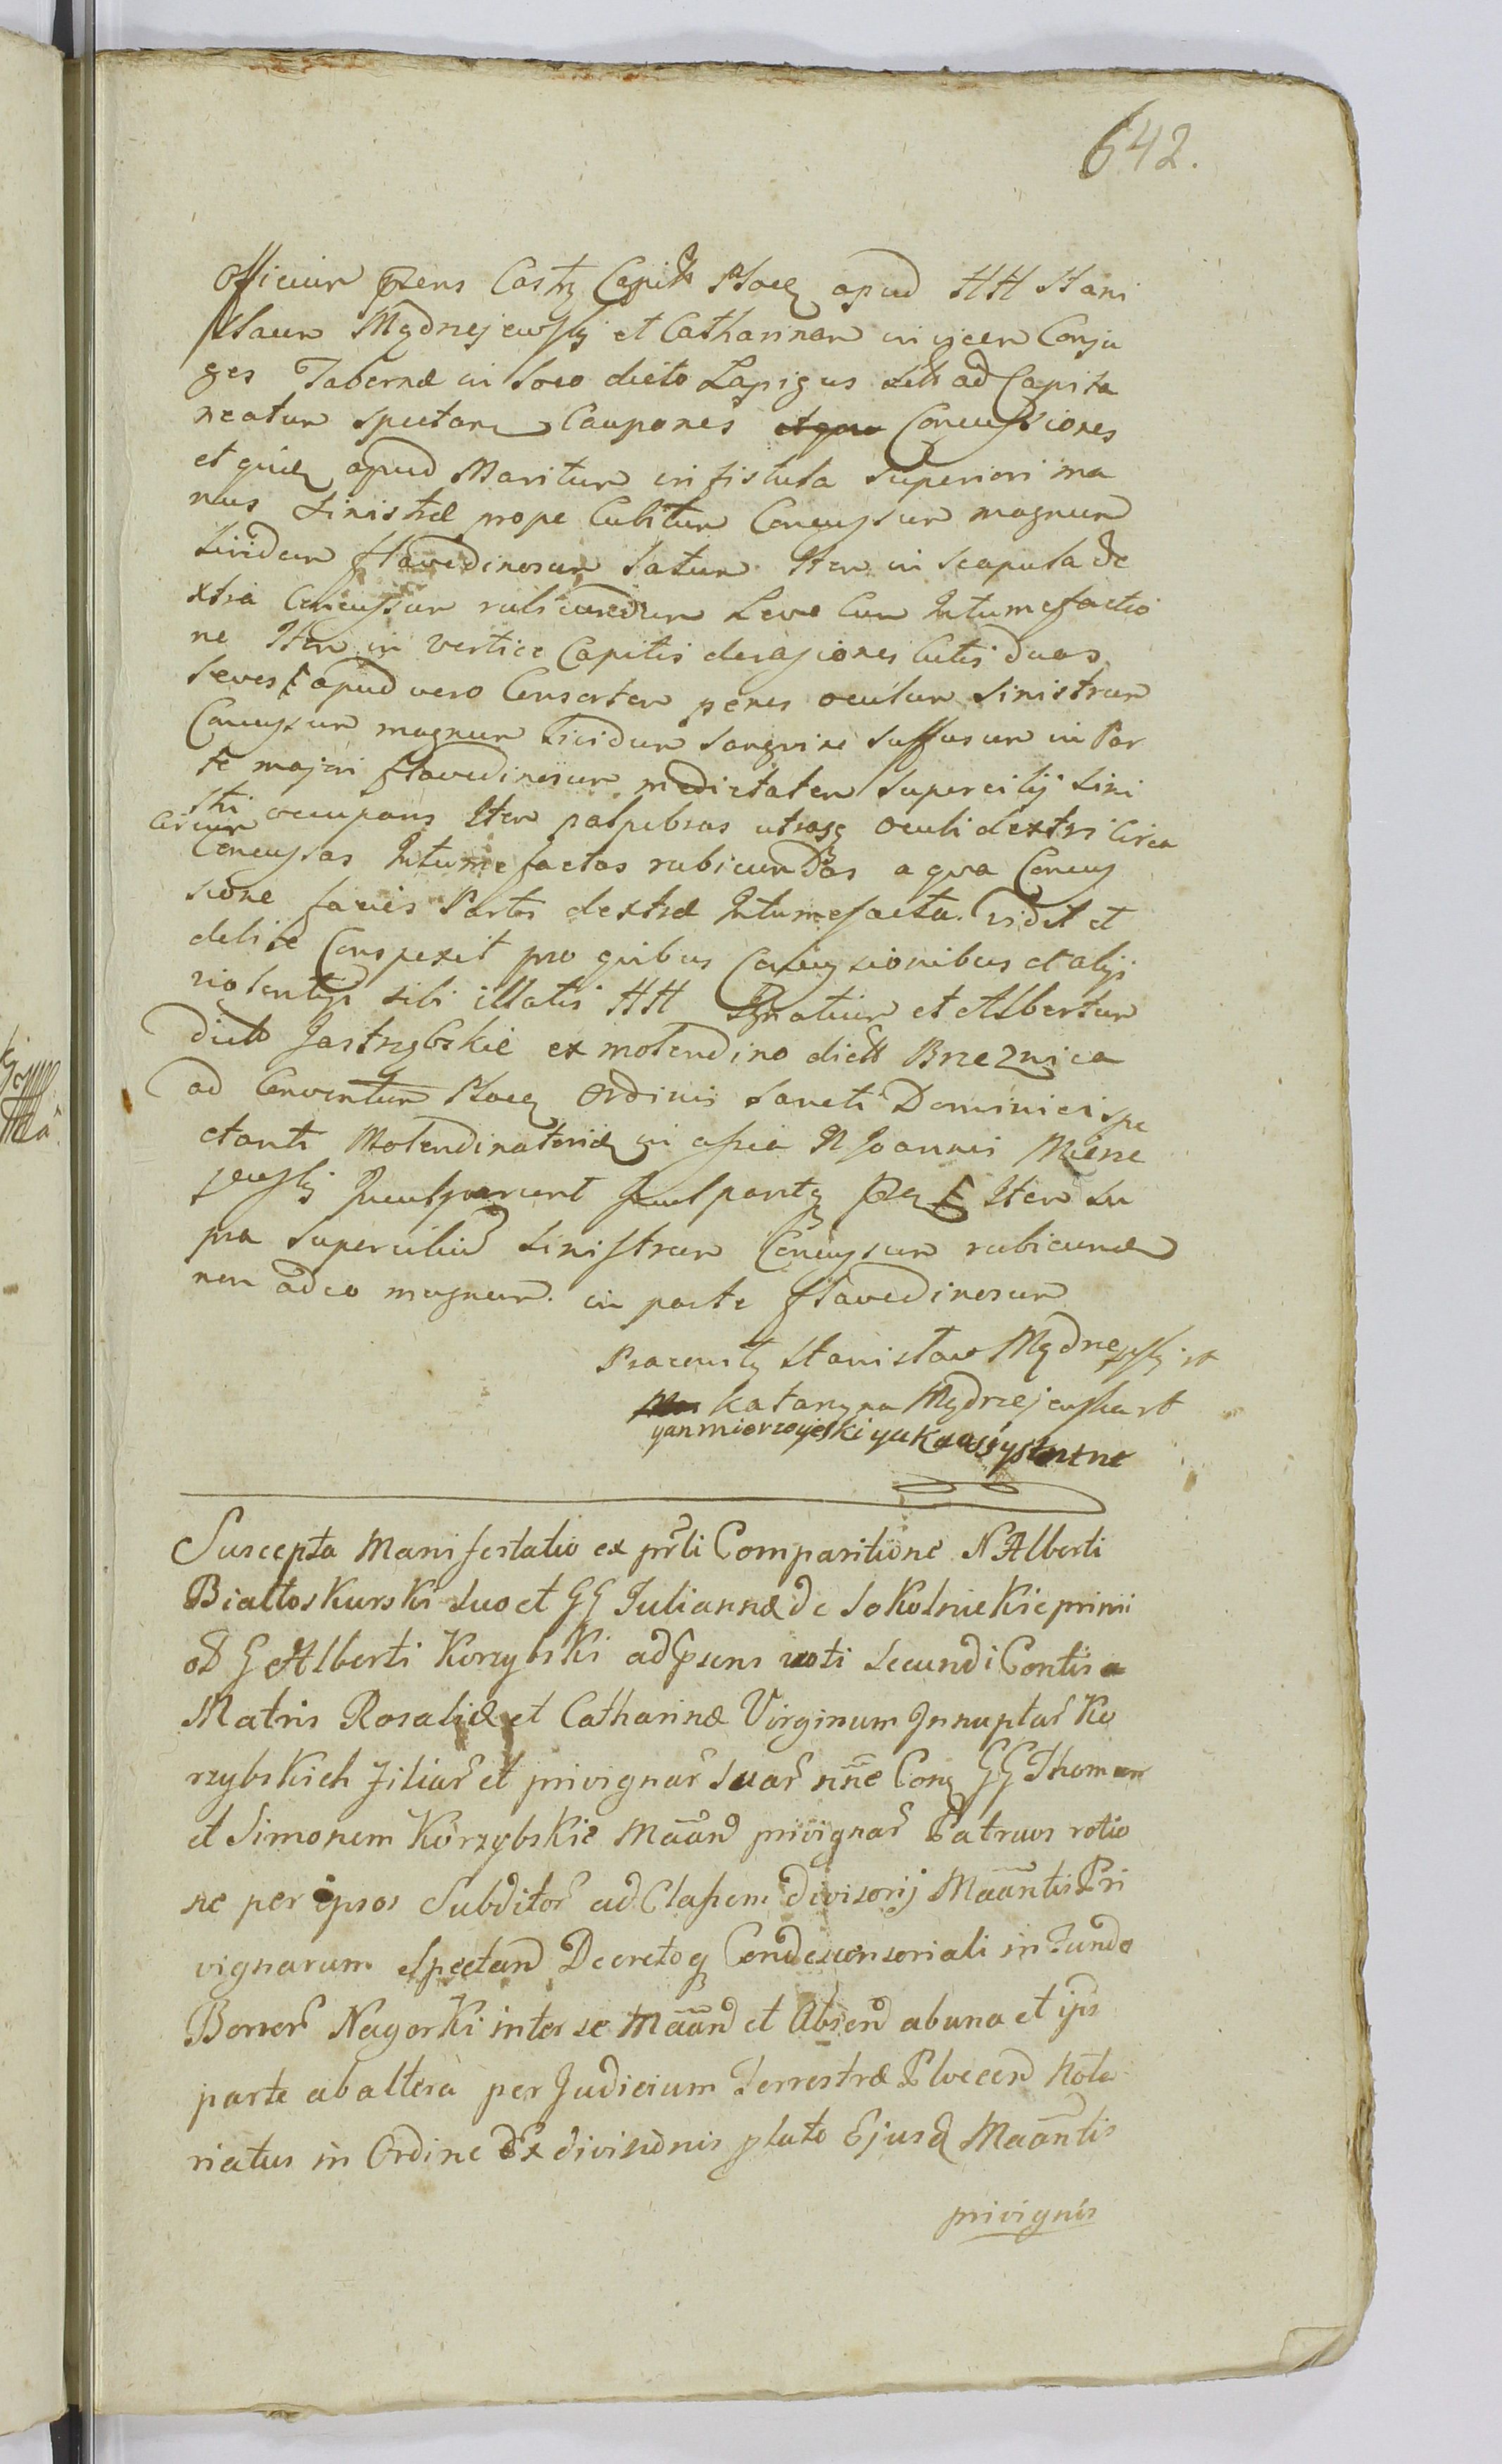 642.
Officium Pzens Castr Capit Ploc apud HH Stani
slaum Mędrzejewsky et Catharinam invicem Conju
ges Tabernæ in Loco dicto Lapigus sitt ad Capita
neatum spectan Caupones Concussiones
et quid apud Maritum in fistula superiori ma
nus sinistræ prope Cubitum Concussum magnum
Lividum flavedinosum latum Item in scapula de
xtra Concussum rubicundum Leve Cum Intumefactio
ne Item in vertice Capitis derasiones Cutis duas
leves apud vero Consortem penes oculum sinistrum
Concussum magnum Lividum sangvine suffusum in Par
te majori flavedinosum medietatem supercilij sini
stri occupans Item palpebras utrasq oculi dextri Circa
Circum
Concussas Intumefactas rubicundas a qva Concus
sione facies Partis dextræ Intumefacta. Vidit et
debite Conspexit pro quibus Concussionibus et alijs
violentijs sibi illatis HH Ignatium et Albertum
dictt Jastrzębskie ex molendino dictt Brzeznica
ad Conventum Ploc Ordinis Sancti Dominici spe
ctanti Molendinatorid in assia N Joannis Mierze
jewsky Inculparunt Inculpantq Pzq Item su
pra supercilium sinistrum Concussum rubicund
non adeo magnum. in parte flavedinosum
Pracowity Stanisław Mędrzejewsky
Katarzyna Mędrzejewska
yan mierzeyeski yako assystent
Suscepta Manifestatio ex prsli Comparitione N Alberti
Białłoskurski suo et GG Juliannæ de Sokolnickie primi
olt G Alberti Korzybski ad Psens voti secundi Contis a
Matris Rosaliæ et Catharinæ Virginum Innuptar Ko
rzybskich filiar et privignar suar nne Conq GG Thomam
et Simonem Korzybskie Maand privignar Patruos ratio
ne per ipsos Subditor ad Classem divisorij Maantis Pri
vignarum spectand Decretoq Condescensoriali in Fundo
Bonor Nagorki inter se Maand et Absend ab una et ips
parte ab altera per Judicium Terrestræ Plocend Nota
riatus in Ordine Exdivisionis plato Ejusd Maantis
privignis